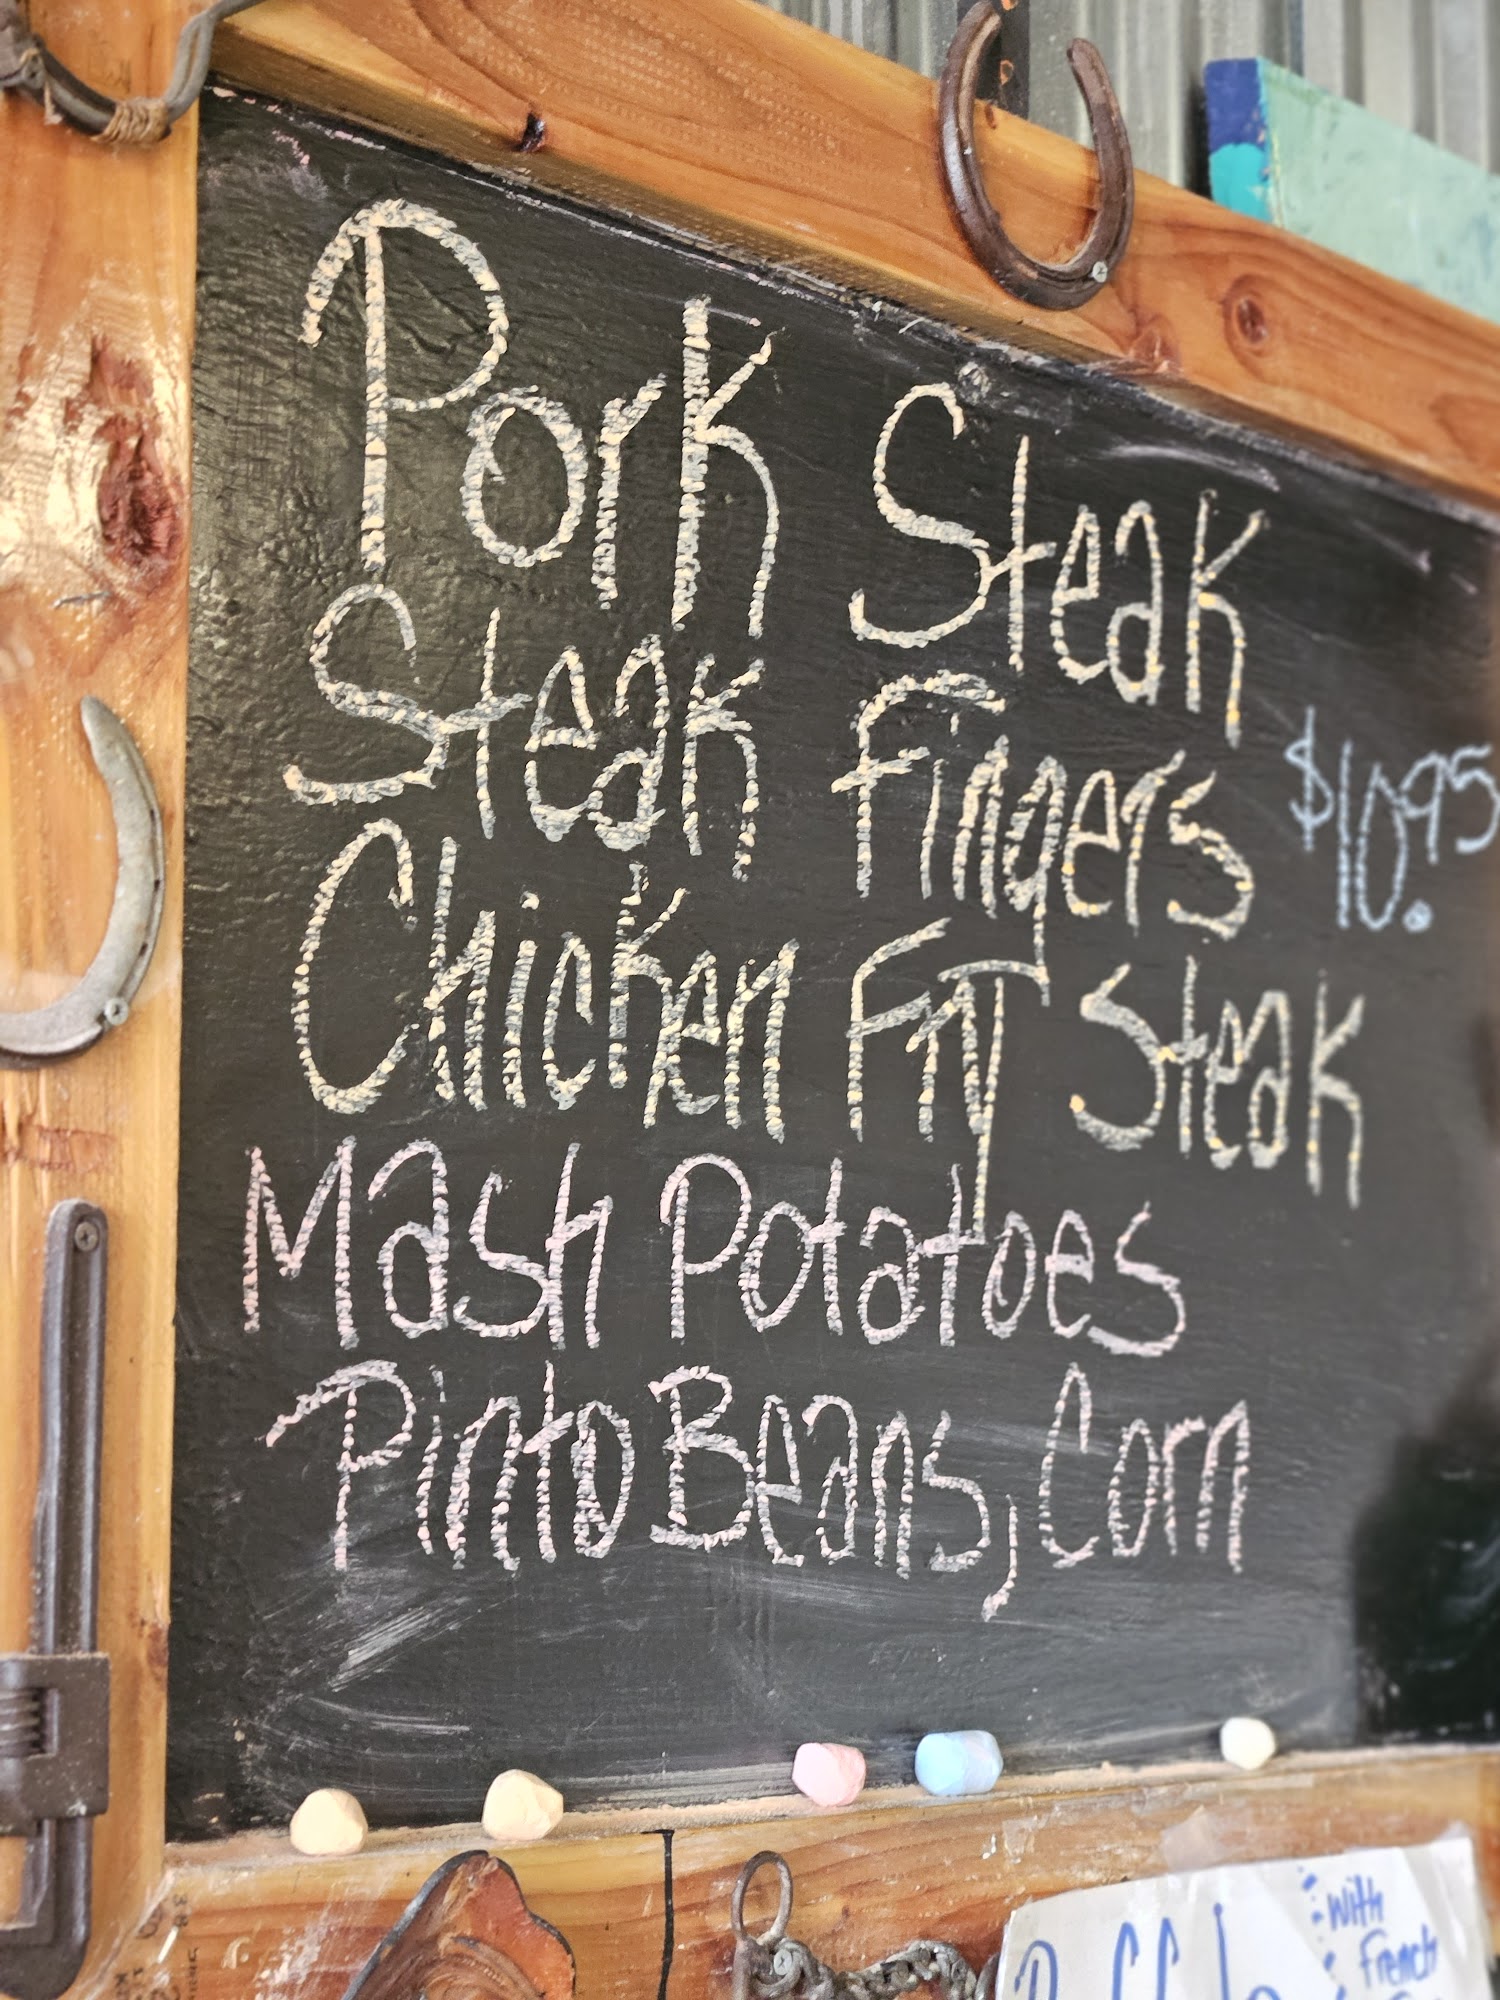 Pork Steak
Steak Fingers $10.95
Chicken Fry Steak
Mash Potatoes
Pinto Beans, Corn
With
French